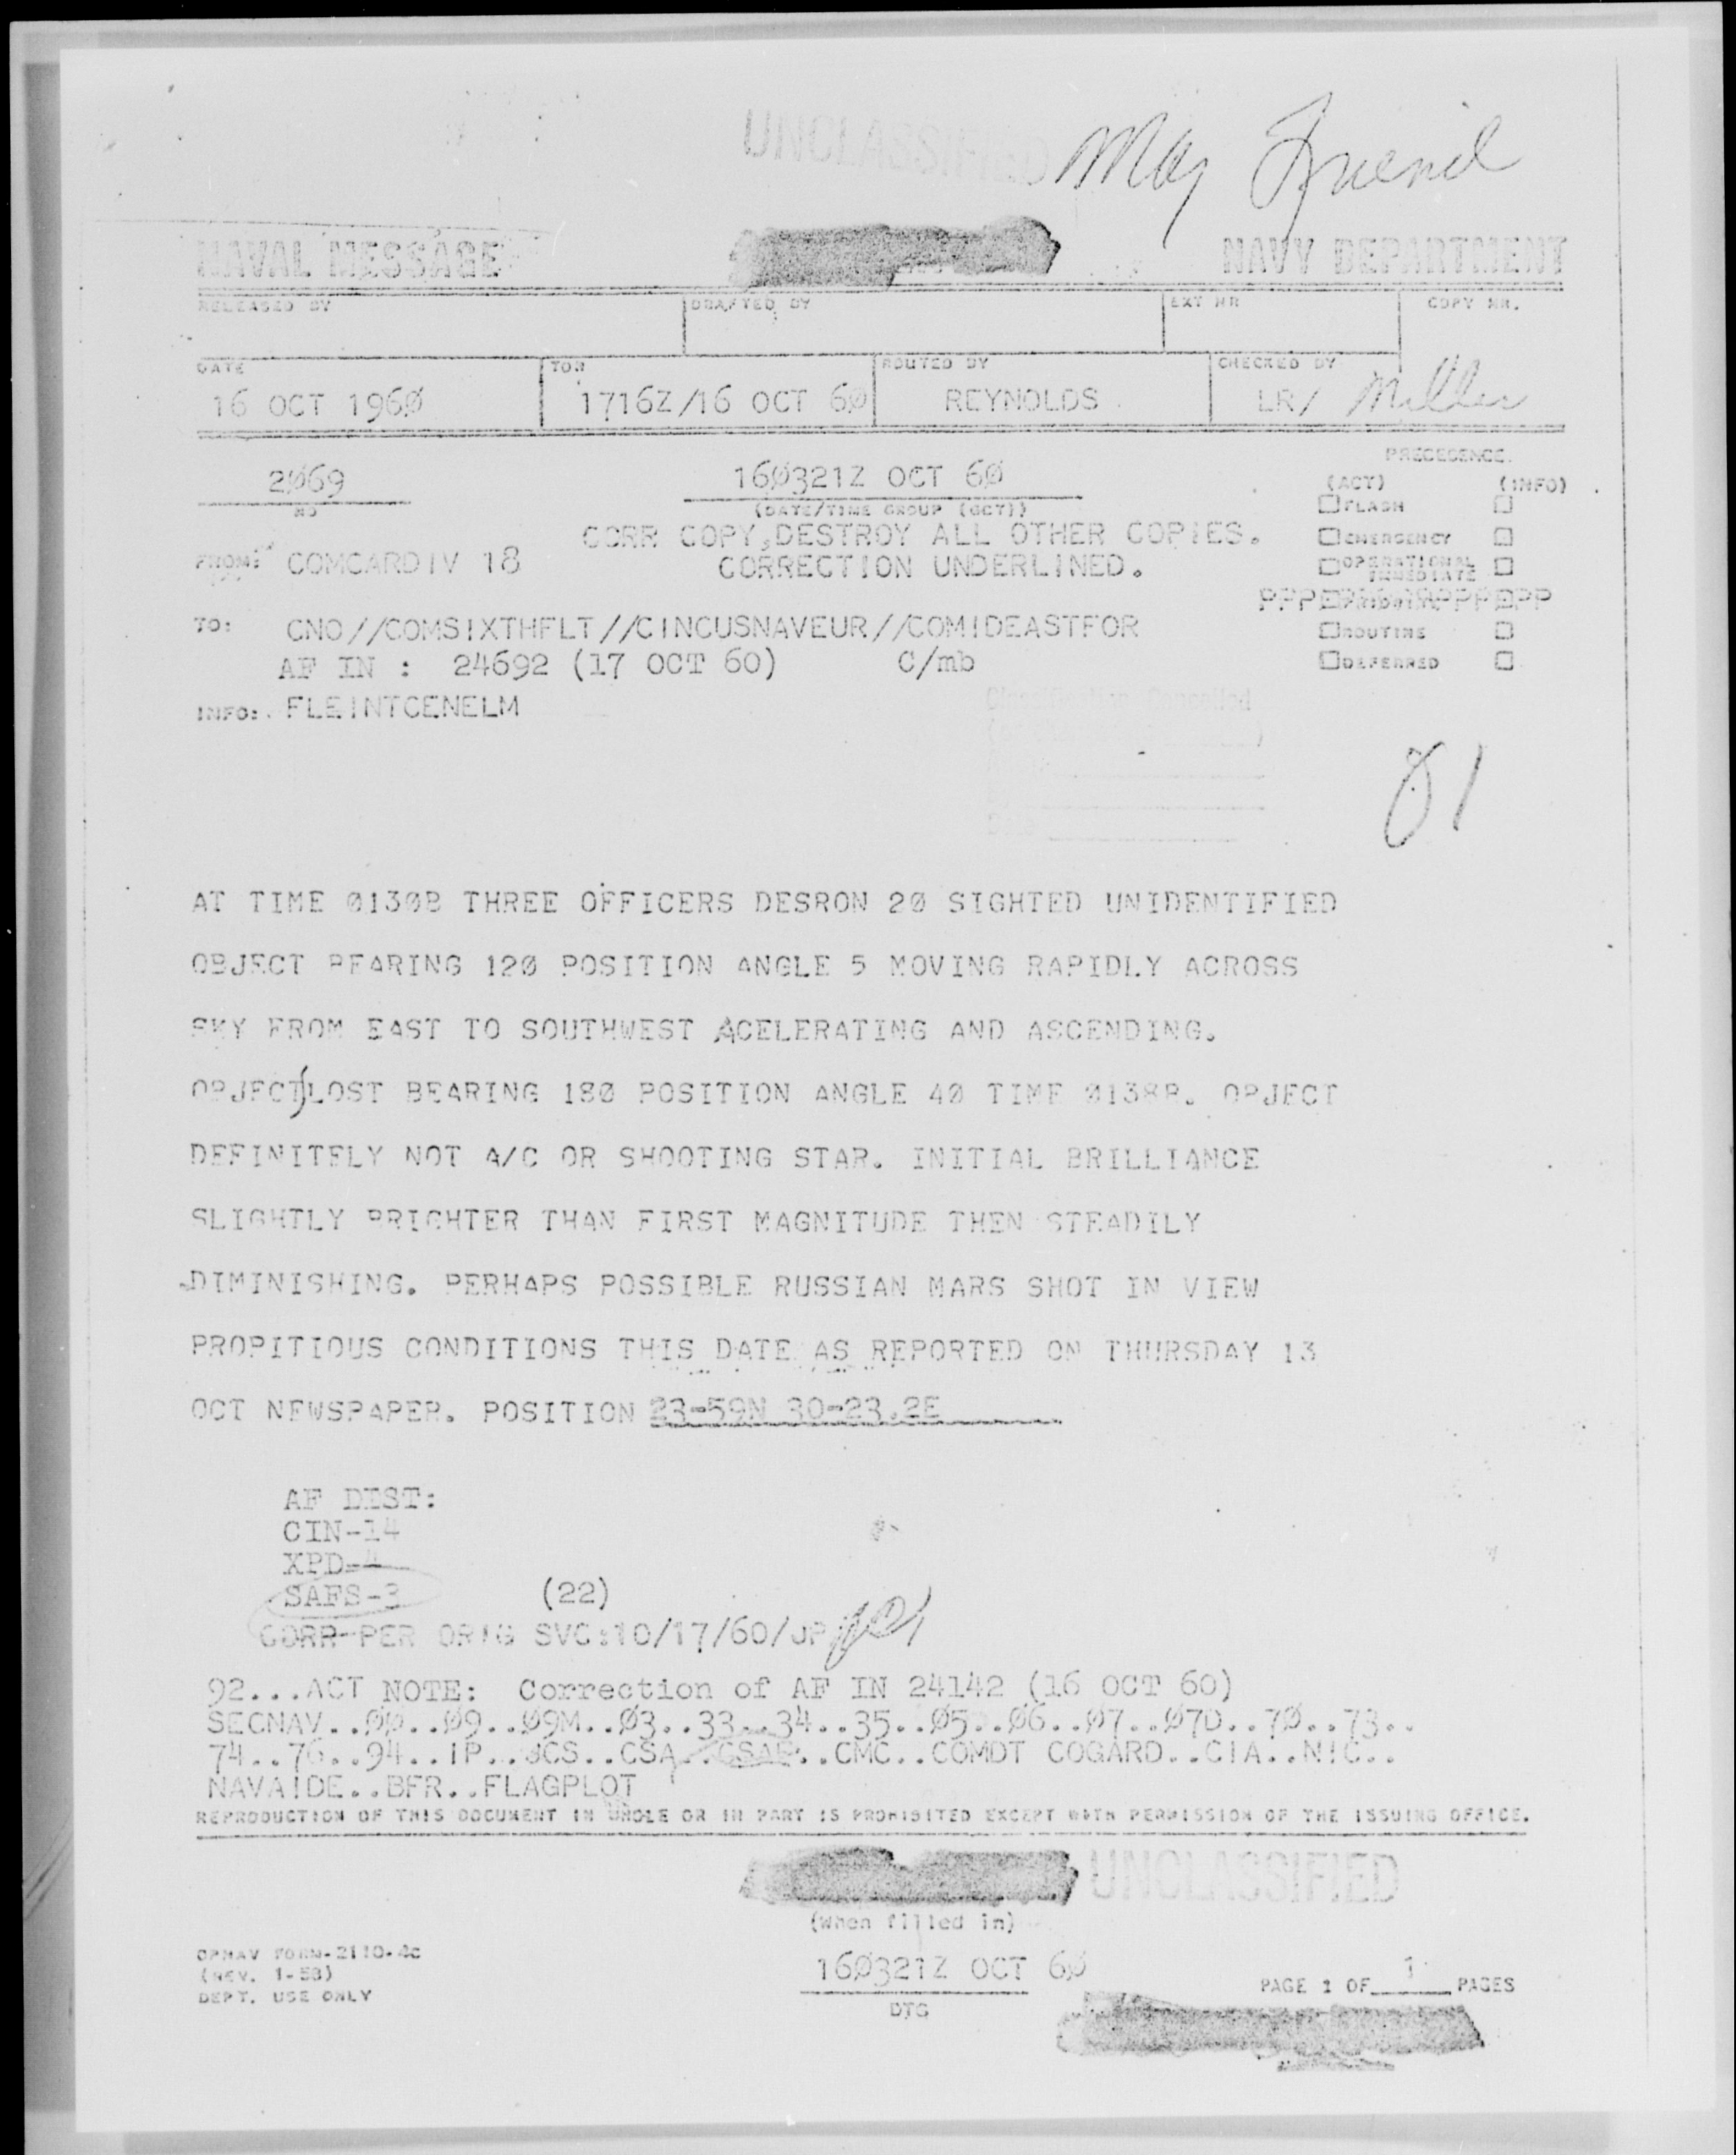 UNCLASSIFIED
Maj Friend
NAVAL MESSAGE NAVY DEPARTMENT
RELEASED BY DRAFTED BY EXT NR COPY NR.
DATE TOR ROUTED BY CHECKED BY
16 OCT 196Ø 1716Z/16 OCT 6Ø REYNOLDS LR/ Miller
2Ø69 16Ø321Z OCT 6Ø
NO (DATE/TIME GROUP (GCT))
PRECEDENCE
(ACT) (INFO)
FLASH
EMERGENCY
OPERATIONAL IMMEDIATE
PRIORITY
ROUTINE
DEFERRED
CORR COPY,DESTROY ALL OTHER COPIES.
FROM: COMCARDIV 18 CORRECTION UNDERLINED.
TO: CNO//COMSIXTHFLT//CINCUSNAVEUR//COMIDEASTFOR
AF IN : 24692 (17 OCT 60) C/mb
INFO: FLEINTCENELM
Classification Cancelled
AT TIME Ø13ØB THREE OFFICERS DESRON 2Ø SIGHTED UNIDENTIFIED
OBJECT BEARING 12Ø POSITION ANGLE 5 MOVING RAPIDLY ACROSS
SKY FROM EAST TO SOUTHWEST ACELERATING AND ASCENDING.
OBJECT LOST BEARING 18Ø POSITION ANGLE 4Ø TIME Ø138B. OBJECT
DEFINITELY NOT A/C OR SHOOTING STAR. INITIAL BRILLIANCE
SLIGHTLY BRIGHTER THAN FIRST MAGNITUDE THEN STEADILY
DIMINISHING. PERHAPS POSSIBLE RUSSIAN MARS SHOT IN VIEW
PROPITIOUS CONDITIONS THIS DATE AS REPORTED ON THURSDAY 13
OCT NEWSPAPER. POSITION 23-59N 30-23.2E
AF DIST:
CIN-14
XPD-4
SAFS-3 (22)
CORR PER ORIG SVC:10/17/60/JP
92...ACT NOTE: Correction of AF IN 24142 (16 OCT 60)
SECNAV..ØØ..Ø9..Ø9M..Ø3..33..34..35..Ø5..Ø6..Ø7..Ø7D..7Ø..73..
74..76..94..IP..JCS..CSA..CSAF..CMC..COMDT COGARD..CIA..NIC..
NAVAIDE..BFR..FLAGPLOT
REPRODUCTION OF THIS DOCUMENT IN WHOLE OR IN PART IS PROHIBITED EXCEPT WITH PERMISSION OF THE ISSUING OFFICE.
UNCLASSIFIED
(When filled in)
OPNAV FORM-2110-4C
(REV. 1-58)
DEPT. USE ONLY
16Ø321Z OCT 6Ø
DTG
PAGE 1 OF 1 PAGES